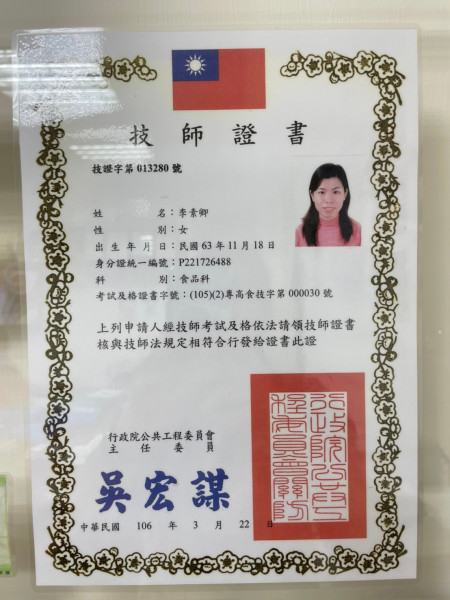 技師證書
技證字第 013280 號
姓名：李素卿
性別：女
出生年月日：民國 63 年 11 月 18 日
身分證統一編號：P221726488
科別：食品科
考試及格證書字號：(105)(2)專高食技字第 000030 號
上列申請人經技師考試及格依法請領技師證書
核與技師法規定相符合行發給證書此證
行政院公共工程委員會
主任委員
吳宏謀
中華民國 106 年 3 月 22 日
行政院公共工程委員會關防